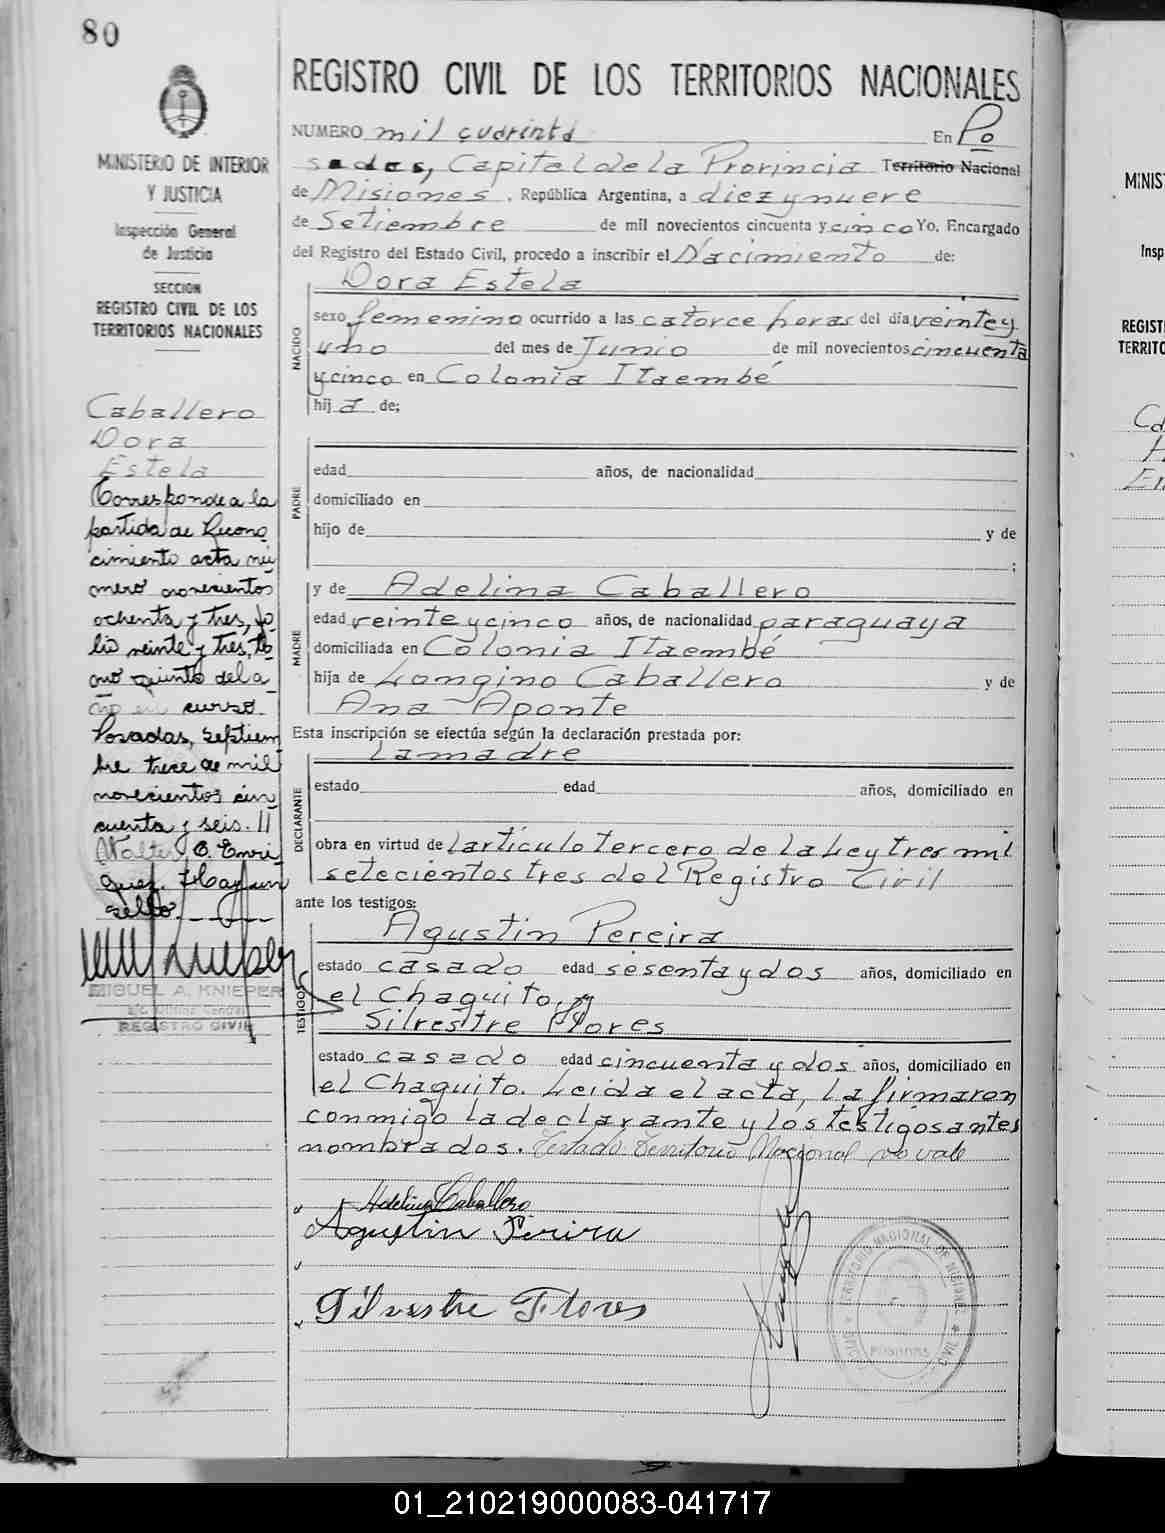 80
REGISTRO CIVIL DE LOS TERRITORIOS NACIONALES
MINISTERIO DE INTERIOR
Y JUSTICIA
Inspección General
de Justicia
SECCION
REGISTRO CIVIL DE LOS
TERRITORIOS NACIONALES
Caballero
Dora
Estela
Corresponde a la
partida de Recono
cimiento acta nú
mero novecientos
ochenta y tres, fo
lio veinte y tres, to
mo quinto del a
ño en curso.
Posadas, septiem
bre trece de mil
novecientos cin
cuenta y seis. //
Walter O. Enri
quez. Hay un
sello.
MIGUEL A. KNIEPER
Oficina Central
REGISTRO CIVIL
NUMERO mil cuarenta En Po
sadas, Capital de la Provincia Territorio Nacional
de Misiones, República Argentina, a diez y nueve
de Setiembre de mil novecientos cincuenta y cinco Yo, Encargado
del Registro del Estado Civil, procedo a inscribir el Nacimiento de:
Dora Estela
NACIDO
sexo femenino ocurrido a las catorce horas del día veinte y
uno del mes de Junio de mil novecientos cincuenta
y cinco en Colonia Itaembé
hija de;
PADRE
edad años, de nacionalidad
domiciliado en
hijo de y de
;
y de Adelina Caballero
MADRE
edad veinte y cinco años, de nacionalidad paraguaya
domiciliada en Colonia Itaembé
hija de Longino Caballero y de
Ana Aponte
Esta inscripción se efectúa según la declaración prestada por:
La madre
DECLARANTE
estado edad años, domiciliado en
obra en virtud de l artículo tercero de la Ley tres mil
setecientos tres del Registro Civil
ante los testigos:
Agustin Pereira
TESTIGOS
estado casado edad sesenta y dos años, domiciliado en
el Chaquito, y
Silvestre Flores
estado casado edad cincuenta y dos años, domiciliado en
el Chaquito. Leida el acta, la firmaron
conmigo la declarante y los testigos antes
nombrados. Testado: Territorio Nacional no vale
Adelina Caballero
Agustin Pereira
Silvestre Flores
TERRITORIO NACIONAL DE MISIONES
CIVIL
POSADAS
MINIS
Insp
REGIST
TERRITO
01_210219000083-041717